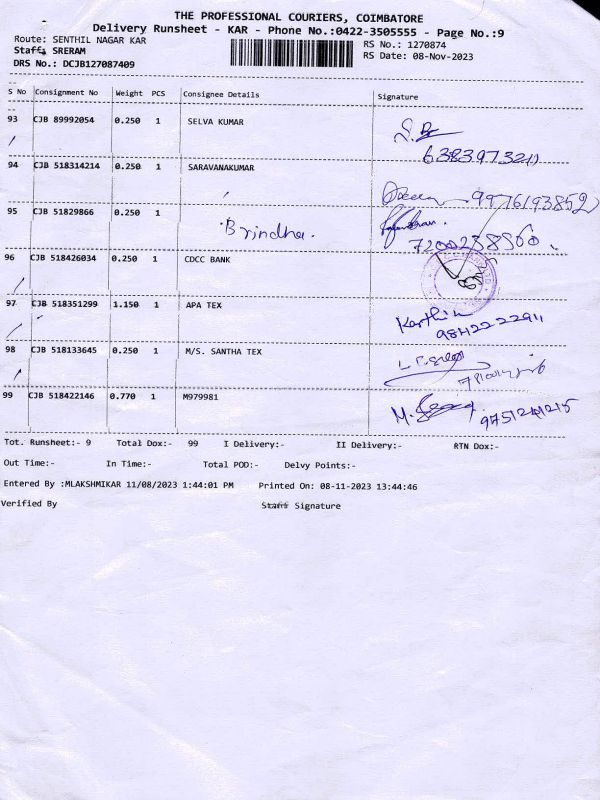 THE PROFESSIONAL COURIERS, COIMBATORE
Delivery Runsheet - KAR - Phone No.:0422-3505555 - Page No.:9
Route: SENTHIL NAGAR KAR
RS No.: 1270874
Staff: SRERAM
RS Date: 08-Nov-2023
DRS No.: DCJB127087409
S No Consignment No Weight PCS Consignee Details Signature
93 CJB 89992054 0.250 1 SELVA KUMAR
6383973211
94 CJB 518314214 0.250 1 SARAVANAKUMAR
9976193852
95 CJB 51829866 0.250 1
Brindha.
7200288560.
96 CJB 518426034 0.250 1 CDCC BANK
97 CJB 518351299 1.150 1 APA TEX
Karthik
9842222911
98 CJB 518133645 0.250 1 M/S. SANTHA TEX
99 CJB 518422146 0.770 1 M979981
9751241215
Tot. Runsheet:- 9 Total Dox:- 99 I Delivery:- II Delivery:- RTN Dox:-
Out Time:- In Time:- Total POD:- Delvy Points:-
Entered By :MLAKSHMIKAR 11/08/2023 1:44:01 PM Printed On: 08-11-2023 13:44:46
Verified By Staff Signature